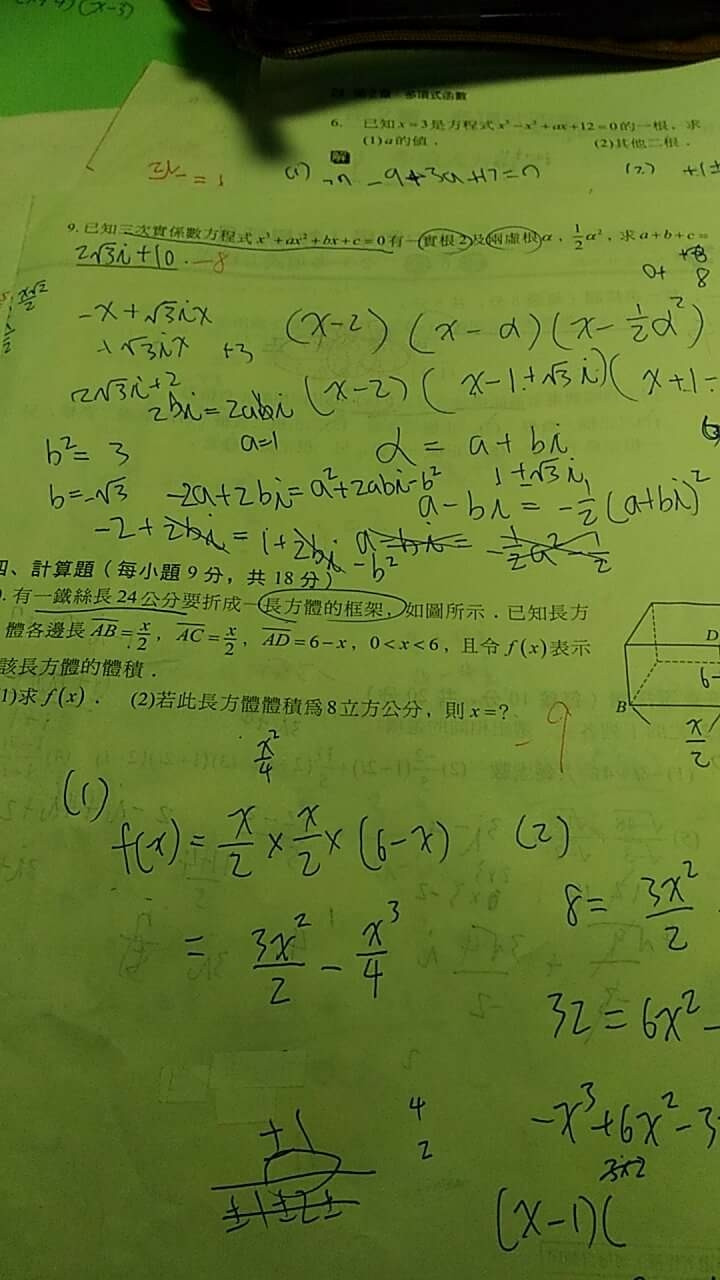 多項式函數
6. 已知x=3是方程式x³-x²+ax+12=0的一根,求
(1)a的值. (2)其他二根.
解
(1) -9+3a+12=0 (2)
9. 已知三次實係數方程式x³+ax²+bx+c=0有一實根2及兩虛根α、½α²,求a+b+c=
2√3i+10. -8
-x+√3ix (x-2)(x-α)(x-½α²)
+√3ix +3
2√3i+2 (x-2)(x-1+√3i)(x+1-
2bi=2abi
b²=3 a=1 α=a+bi
1+√3i
b=-√3 -2a+2bi=a²+2abi-b² a-bi=-½(a+bi)²
-2+2bi=1+2bi-b²
四、計算題(每小題9分,共18分)
. 有一鐵絲長24公分要折成一長方體的框架,如圖所示.已知長方
體各邊長AB=x/2,AC=x/2,AD=6-x,0<x<6,且令f(x)表示
該長方體的體積.
1)求f(x). (2)若此長方體體積為8立方公分,則x=?
D
6-
B
x/2
-9
x²/4
(1) f(x)=x/2×x/2×(6-x) (2)
=3x²/2-x³/4
8=3x²/2
32=6x²-
-x³+6x²-3
(x-1)(
+1
4
2